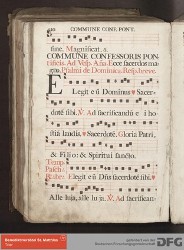 COMMUNE CONF. PONT.
fine. Magnificat. 8.
COMMUNE CONFESSORIS PON
tificis. Ad Vesp. Ana. Ecce sacerdos ma
gnus. Psalmi de Dominica. Resp. breve.
E
Legit eū Dominus Sacer-
dotē sibi. V. Ad sacrificandū e i ho
stiā laudis. Sacerdotē. Gloria Patri,
& Filio: & Spiritui sancto.
Temp.
Pasch.
Elegit eū Dñs sacerdotē sibi.
Alle luja, alle lu ja. V. Ad sacrifican-
Benediktinerabtei St. Matthias
Trier
DFG